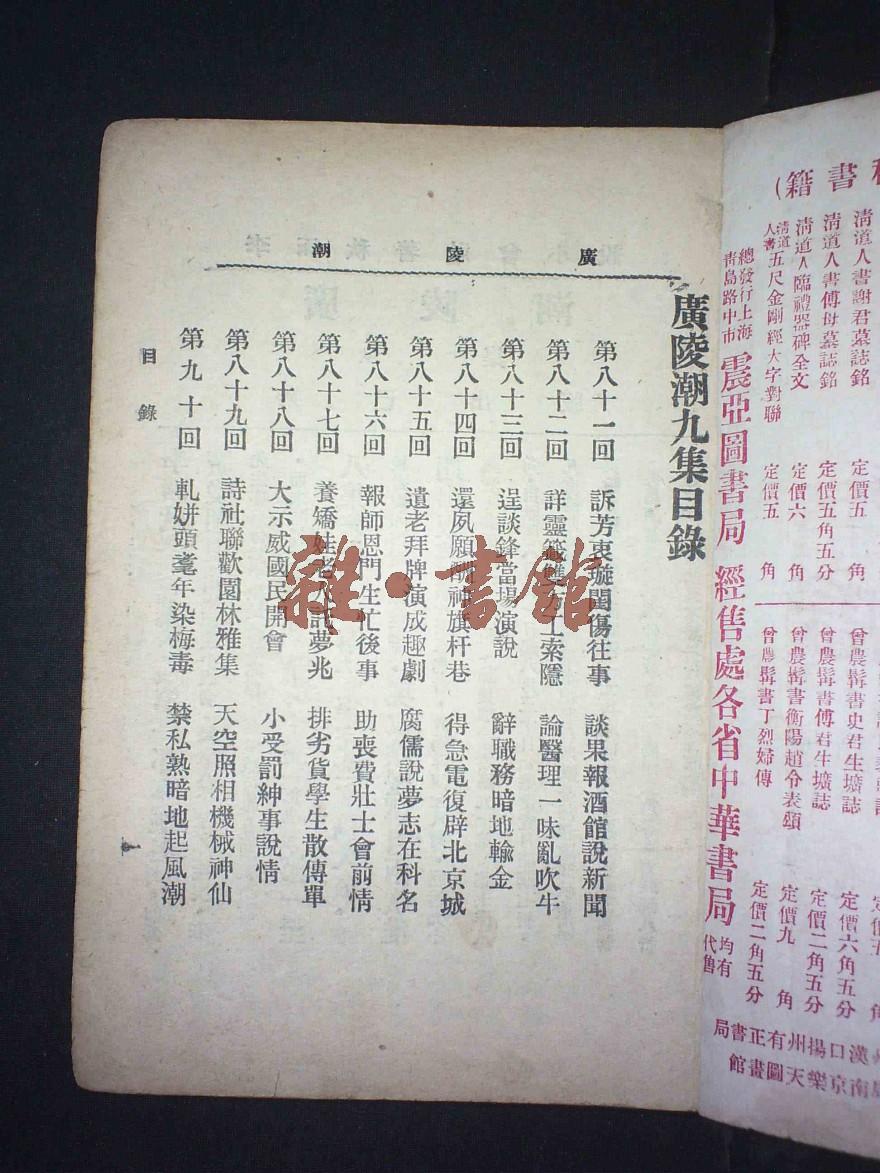 廣陵潮
廣陵潮九集目錄
第八十一回 訴芳衷璇閨傷往事 談果報酒館說新聞
第八十二回 詳靈籤雙方士索隱 論醫理一味亂吹牛
第八十三回 逞談鋒當場演說 辭職務暗地輸金
第八十四回 還夙願酬神旗杆巷 得急電復辟北京城
第八十五回 遺老拜牌演成趣劇 腐儒說夢志在科名
第八十六回 報師恩門生忙後事 助喪費壯士會前情
第八十七回 養嬌娃老人託夢兆 排劣货學生散傳單
第八十八回 大示威國民開會 小受罰紳事說情
第八十九回 詩社聯歡園林雅集 天空照相機械神仙
第九十回 軋姘頭耄年染梅毒 禁私熟暗地起風潮
目錄
雜·書館
書籍)
清道人書謝君墓誌銘 定價五角
清道人書傅母墓誌銘 定價五角五分
清道人臨禮器碑全文 定價六角
清道人書五尺金剛經大字對聯 定價五角
曾農髯書史君生壙誌 定價六角五分
曾農髯書傅君生壙誌 定價二角五分
曾農髯書衡陽趙令表頌 定價九角
曾農髯書丁烈婦傳 定價二角五分
總發行上海青島路中市 震亞圖書局 經售處各省中華書局 均有代售
漢口揚州有正書局
南京樂天圖畫館